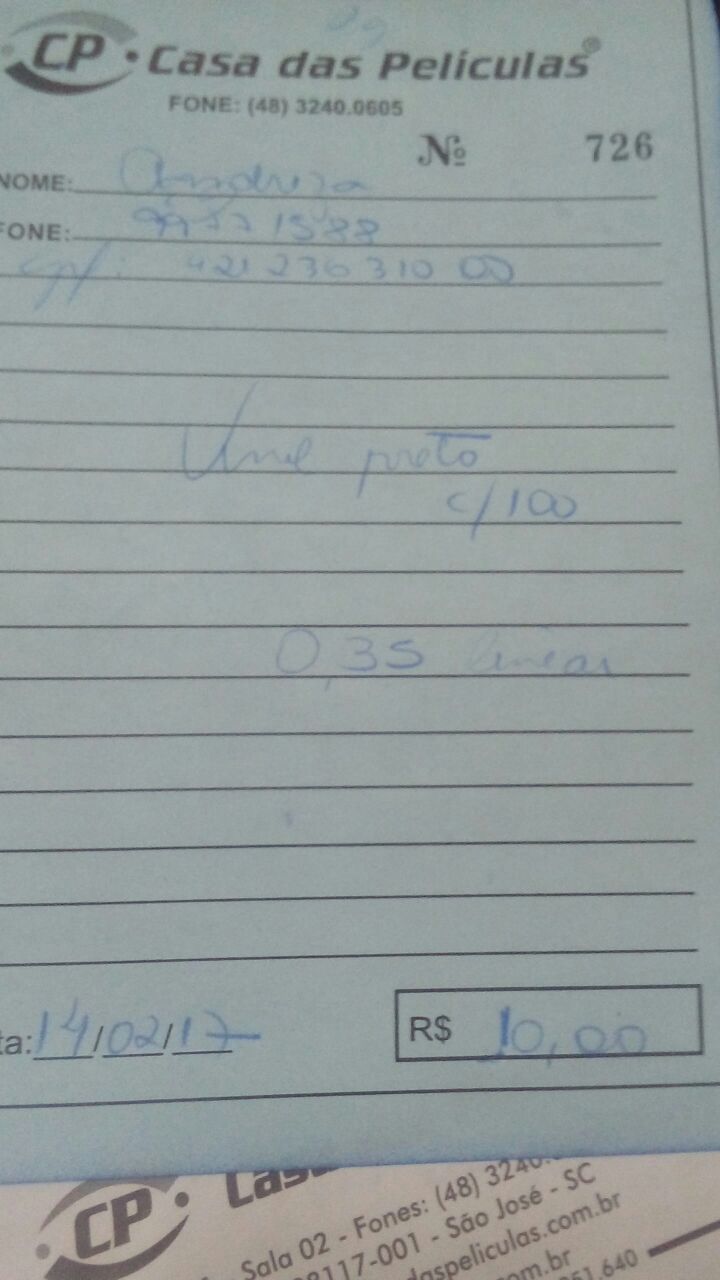 CP • Casa das Películas®
FONE: (48) 3240.0605
Nº 726
NOME: Andreza
FONE: 99771588
cpf: 421 236 310 00
preto
c/100
0,35 linear
ta: 14/02/17
R$ 10,00
CP • Casa
Sala 02 - Fones: (48) 3240.
88117-001 - São José - SC
daspeliculas.com.br
om.br
51 640